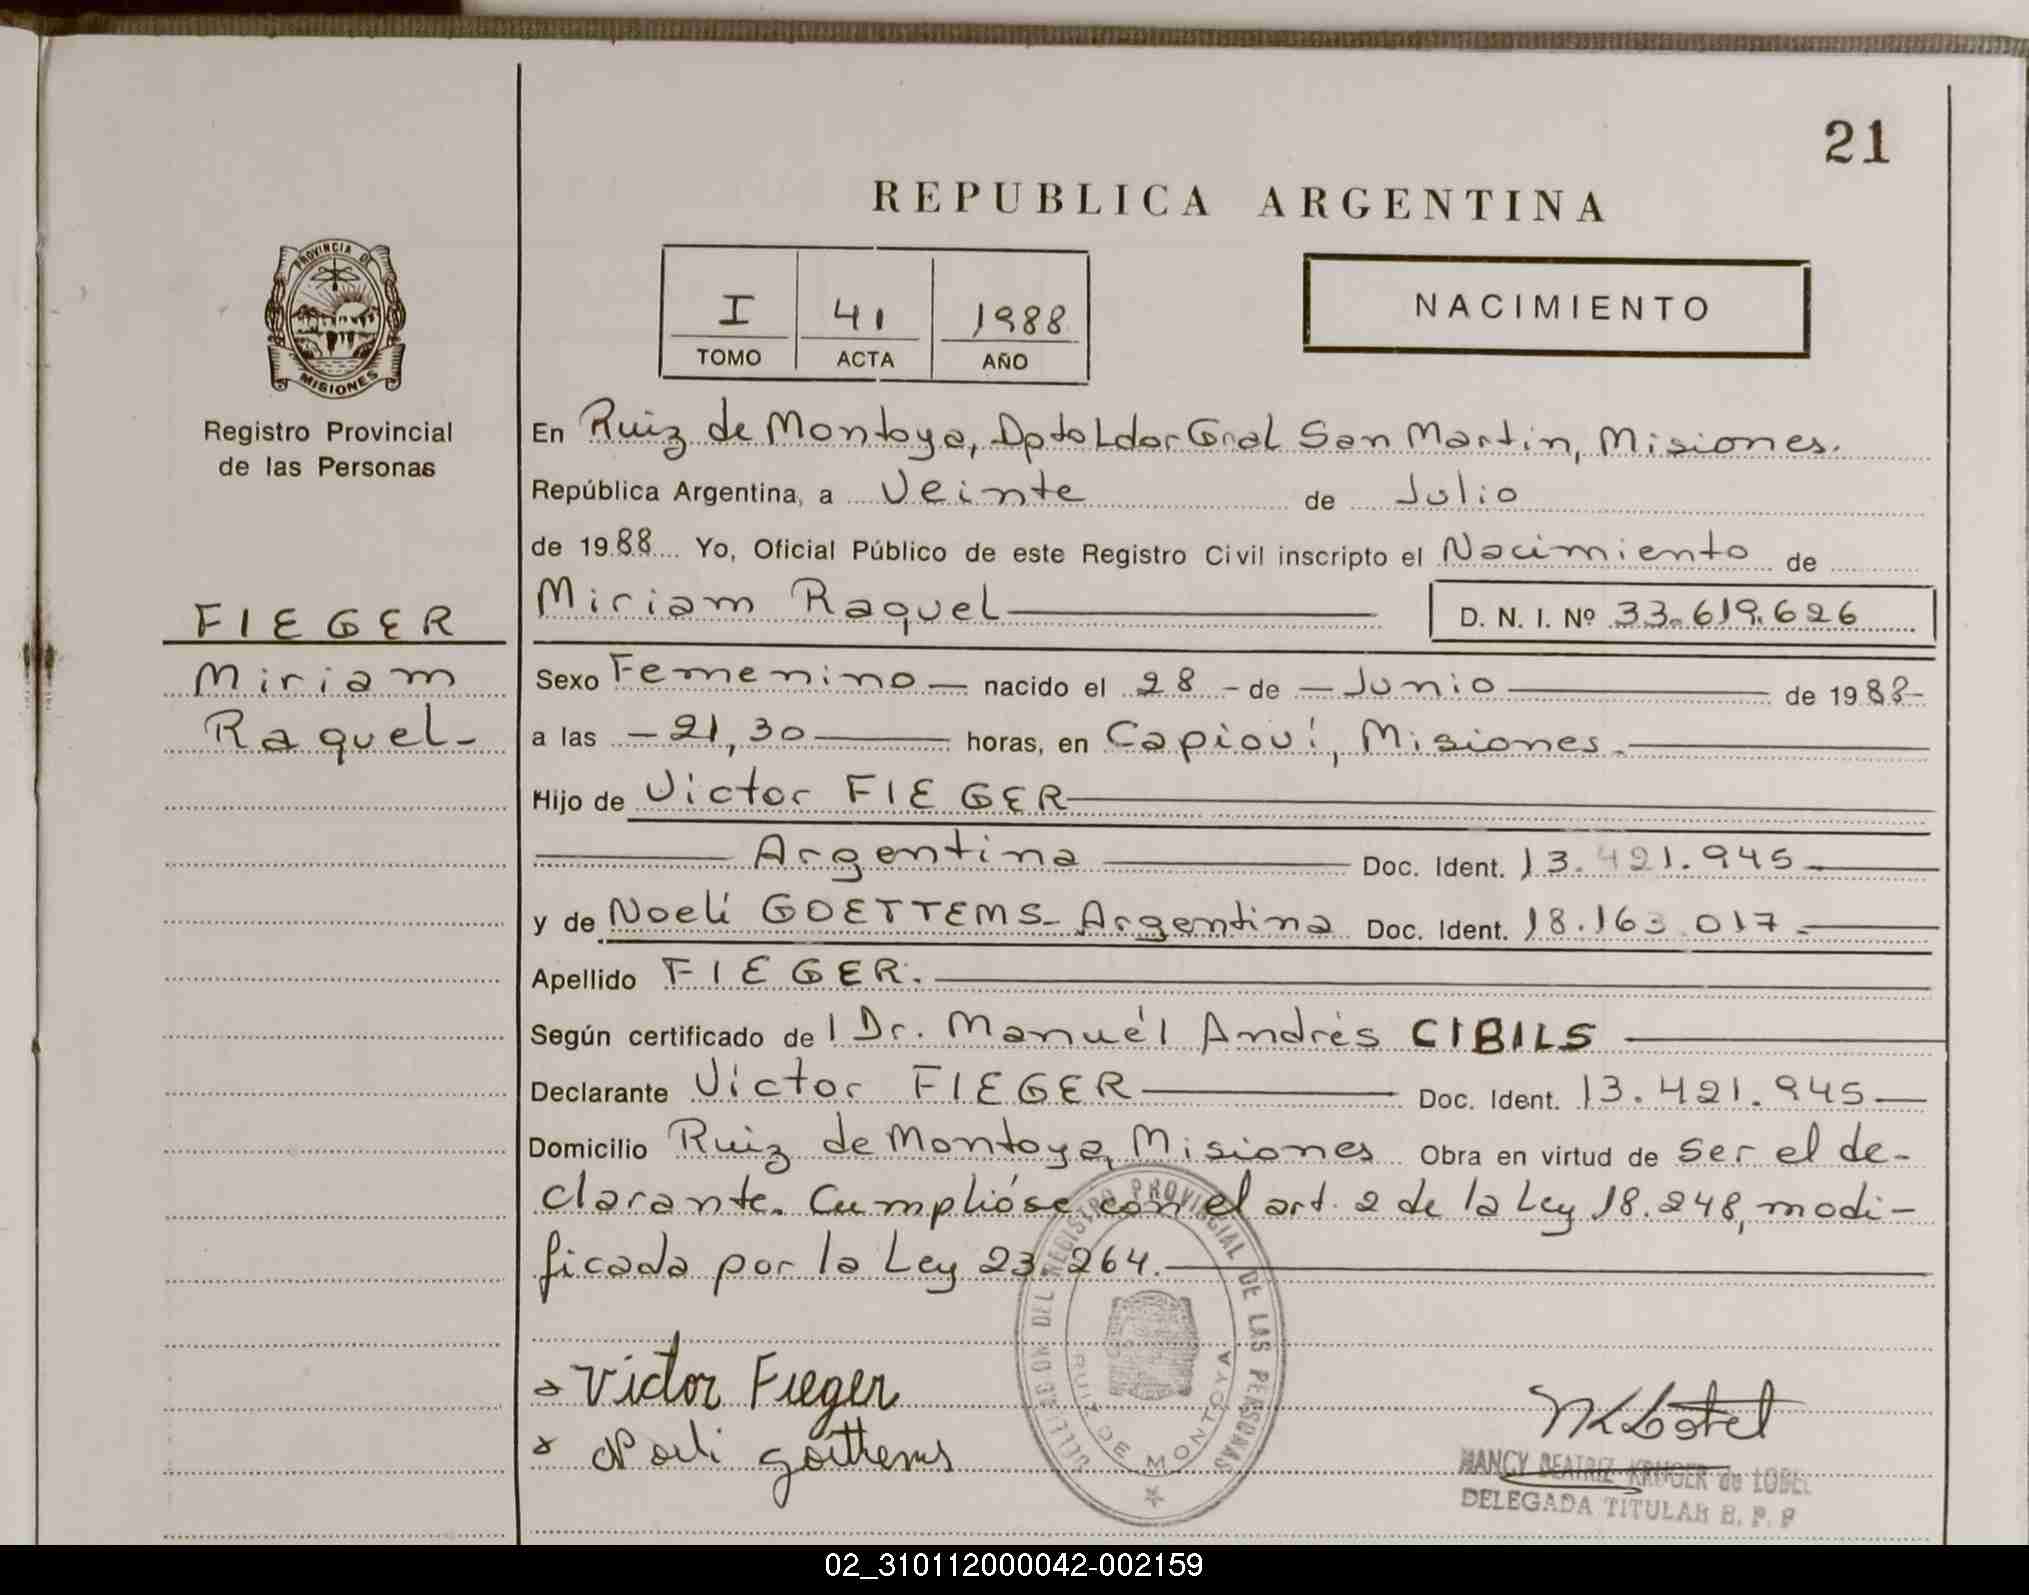 21
REPUBLICA ARGENTINA
PROVINCIA DE
MISIONES
Registro Provincial
de las Personas
I 41 1988
TOMO ACTA AÑO
NACIMIENTO
En Ruiz de Montoya, Dpto Ldor Gral San Martín, Misiones.
República Argentina, a Veinte de Julio
de 1988 Yo, Oficial Público de este Registro Civil inscripto el Nacimiento de
FIEGER
Miriam
Raquel-
Miriam Raquel D. N. I. Nº 33.619.626
Sexo Femenino nacido el 28 - de - Junio de 1988-
a las - 21,30 horas, en Capioví, Misiones.
Hijo de Victor FIEGER
Argentina Doc. Ident. 13.421.945
y de Noelí GOETTEMS- Argentina Doc. Ident. 18.163.017.
Apellido FIEGER.
Según certificado de l Dr. Manuél Andrés CIBILS
Declarante Victor FIEGER Doc. Ident. 13.421.945
Domicilio Ruiz de Montoya, Misiones Obra en virtud de ser el de-
clarante. Cumplióse con el art. 2 de la Ley 18.248, modi-
ficada por la Ley 23.264.
DEL REGISTRO PROVINCIAL DE LAS PERSONAS
RUIZ DE MONTOYA
Victor Fieger
Noeli Goettems
NANCY BEATRIZ KRUGER de LOBEL
DELEGADA TITULAR R. P. P
02_310112000042-002159